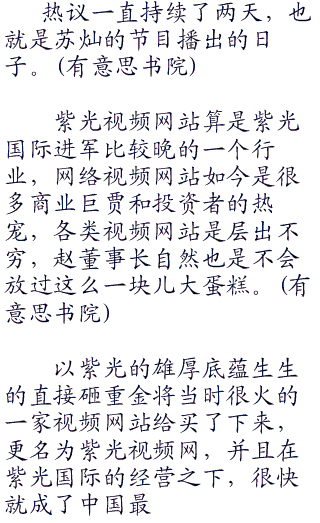 热议一直持续了两天，也
就是苏灿的节目播出的日
子。(有意思书院)
紫光视频网站算是紫光
国际进军比较晚的一个行
业，网络视频网站如今是很
多商业巨贾和投资者的热
宠，各类视频网站是层出不
穷，赵董事长自然也是不会
放过这么一块儿大蛋糕。(有
意思书院)
以紫光的雄厚底蕴生生
的直接砸重金将当时很火的
一家视频网站给买了下来，
更名为紫光视频网，并且在
紫光国际的经营之下，很快
就成了中国最